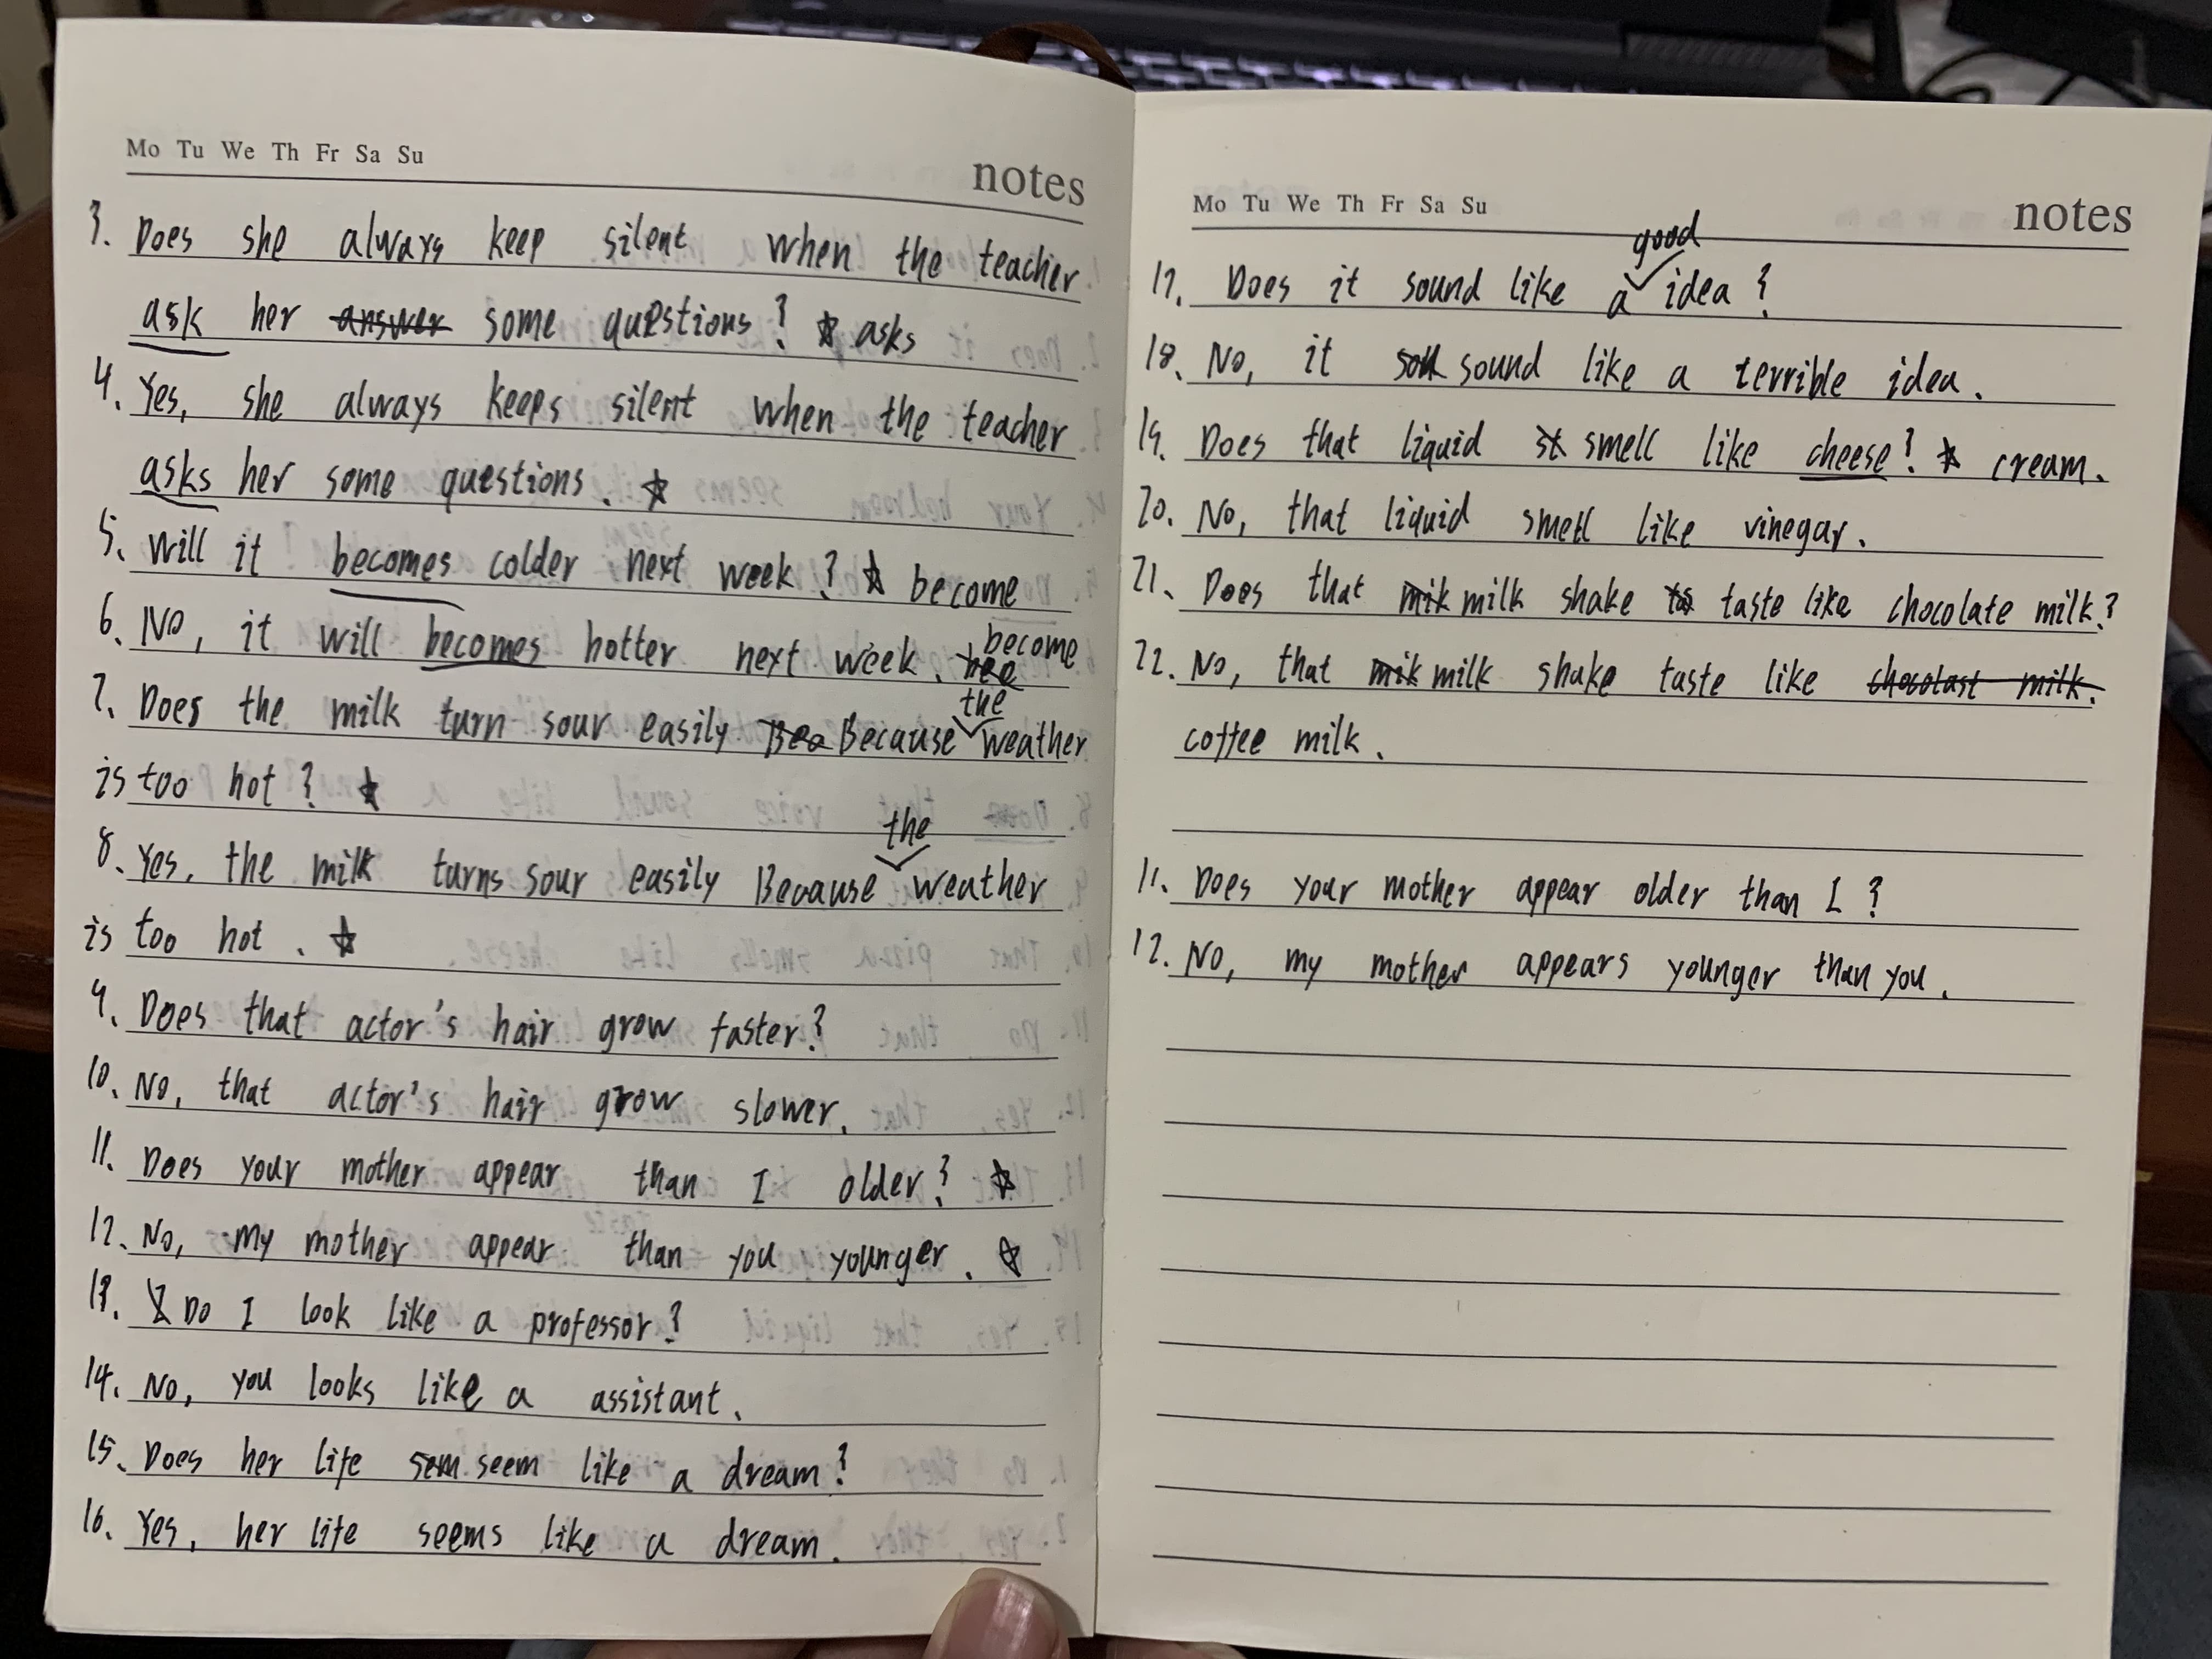 Mo Tu We Th Fr Sa Su
notes
3. Does she always keep silent when the teacher
ask her answer some questions? ☆ asks
4. Yes, she always keeps silent when the teacher
asks her some questions. ☆
5. Will it becomes colder next week? ☆ become
6. No, it will becomes hotter next week. bee become
7. Does the milk turn sour easily Bea Because the weather
is too hot? ☆
8. Yes, the milk turns sour easily Because the weather
is too hot. ☆
9. Does that actor's hair grow faster?
10. No, that actor's hair grow slower.
11. Does your mother appear than I older? ☆
12. No, my mother appear than you younger. ☆
13. Do I look like a professor?
14. No, you looks like a assistant.
15. Does her life sem seem like a dream?
16. Yes, her life seems like a dream.
Mo Tu We Th Fr Sa Su
notes
17. Does it sound like a good idea?
18. No, it sou sound like a terrible idea.
19. Does that liquid st smell like cheese? ☆ cream.
20. No, that liquid smell like vinegar.
21. Does that mik milk shake tas taste like chocolate milk?
22. No, that mik milk shake taste like chocolast milk.
coffee milk.
11. Does your mother appear older than I?
12. No, my mother appears younger than you.